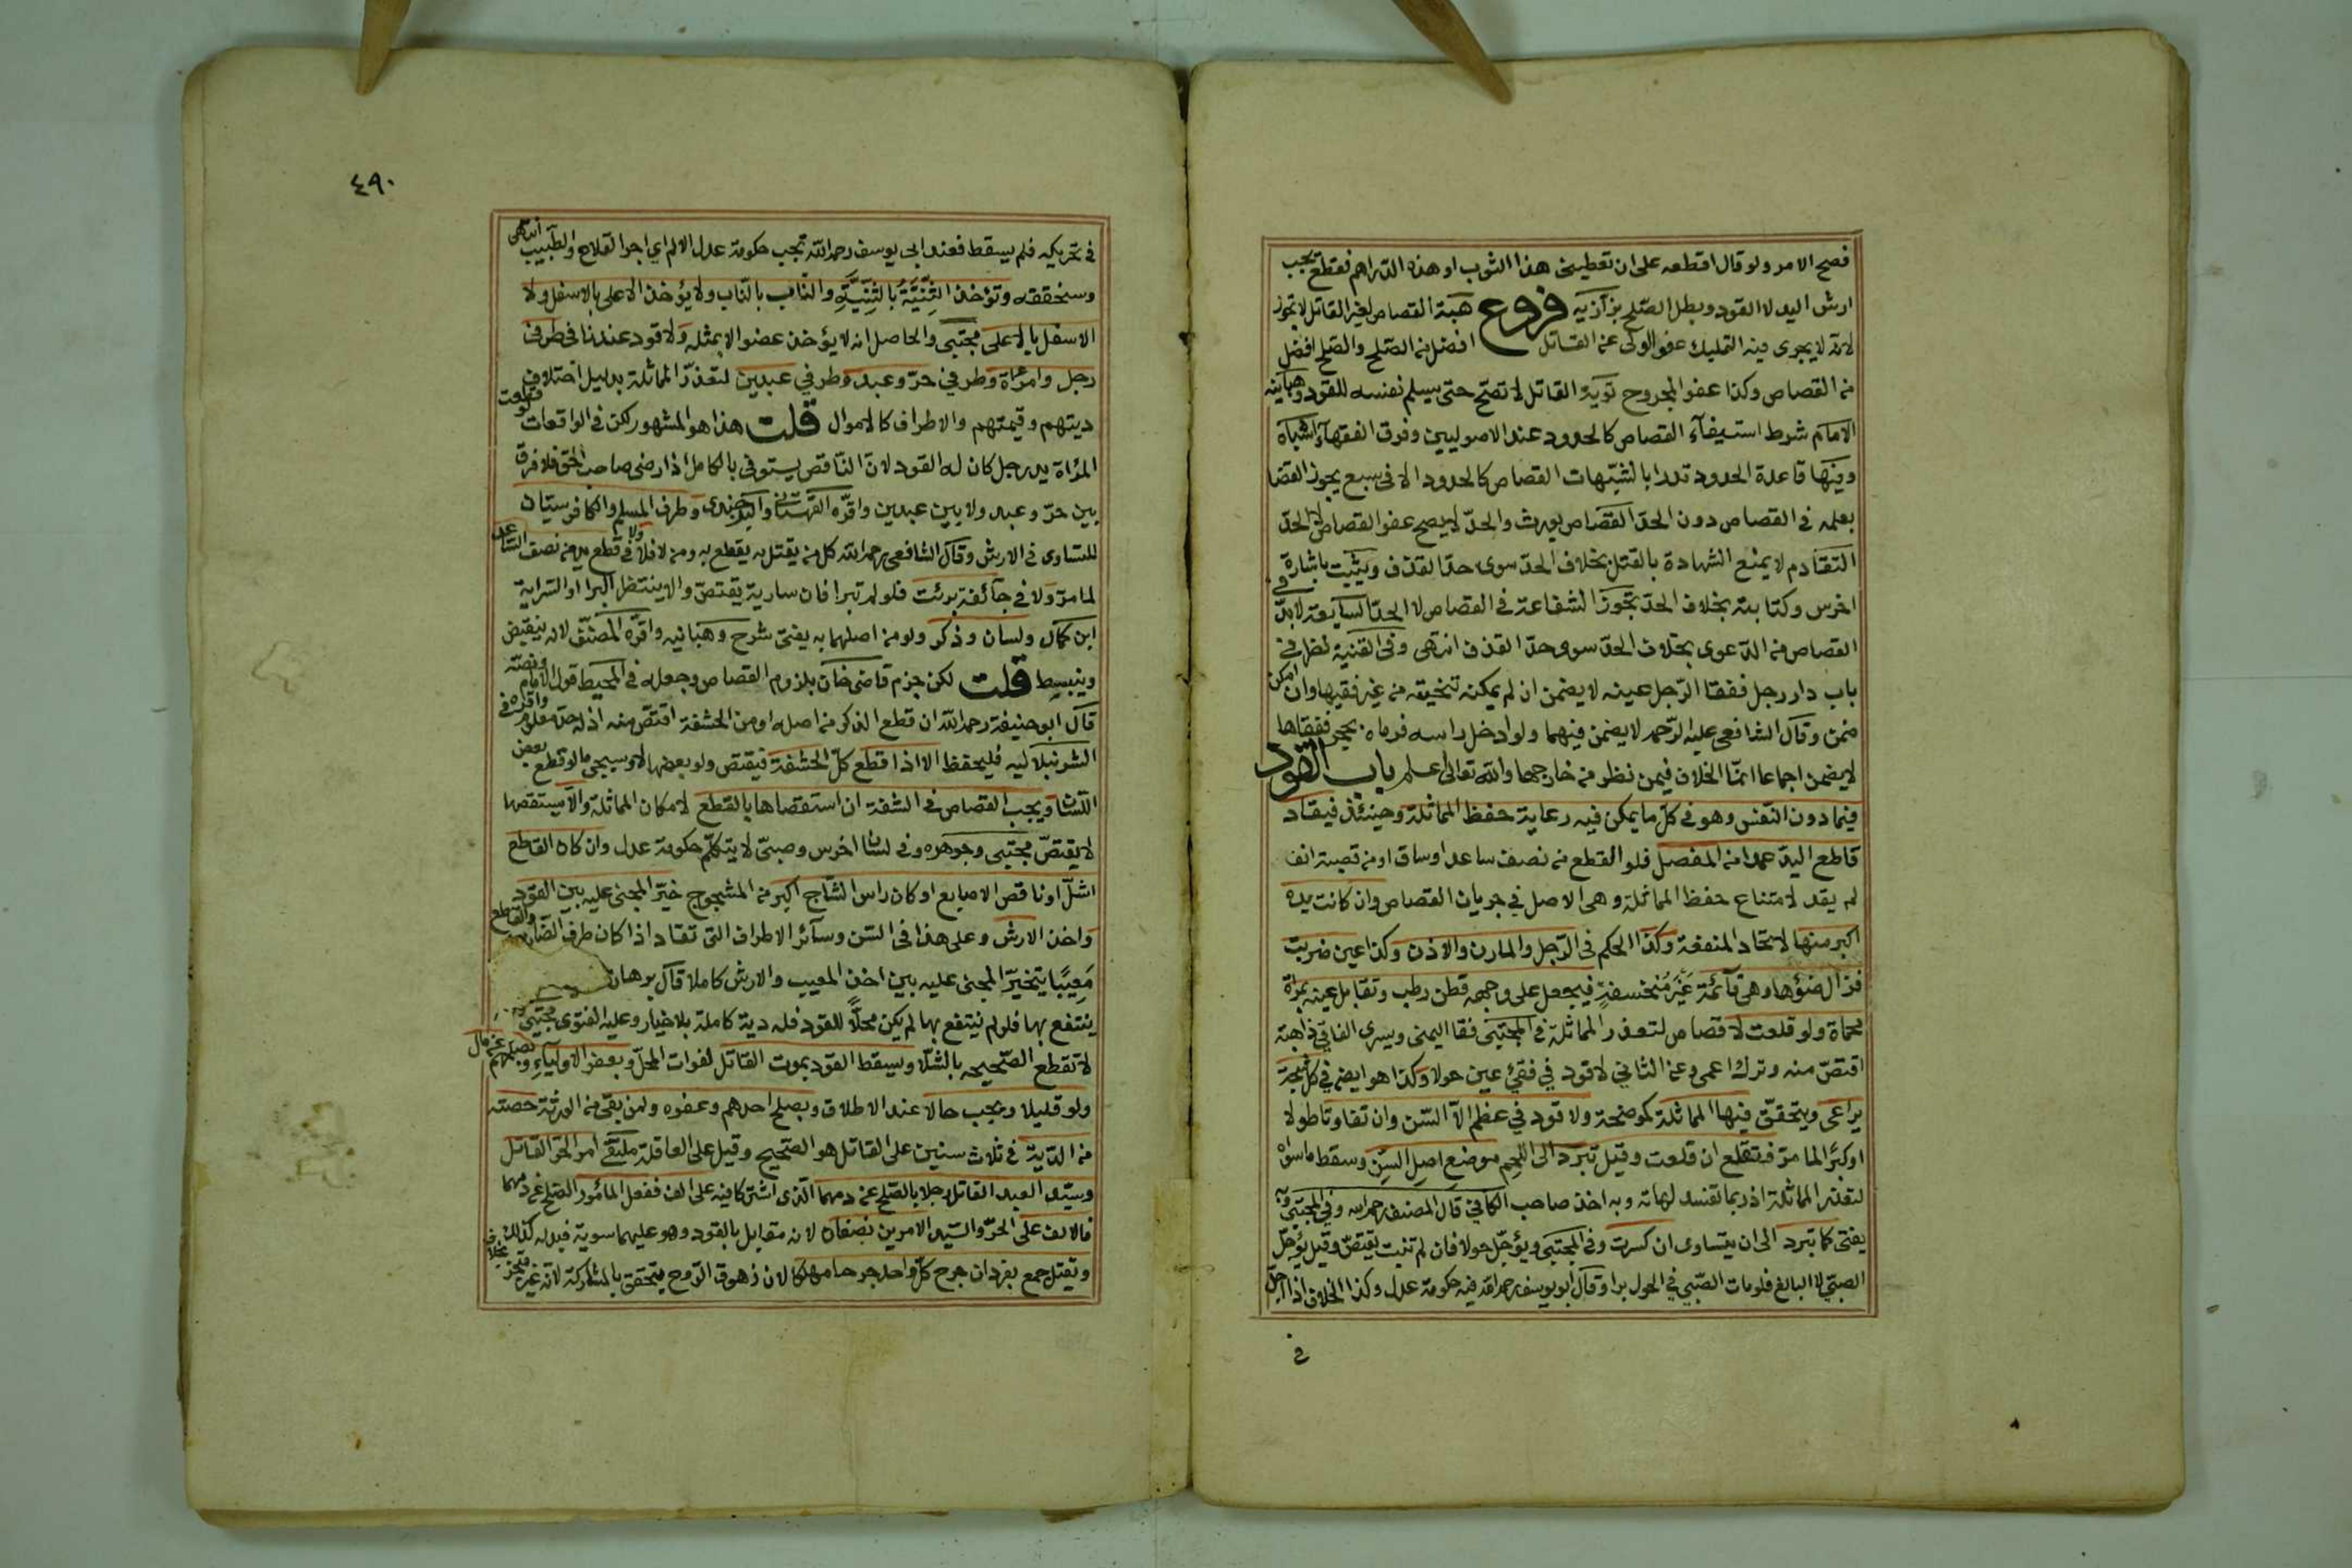 فصح الامر ولو قال اقطعه على ان تعطيني هذا الثوب او هذه الدراهم فقطع يجب
ارش اليد لا القود وبطل الصلح بزازيه فروع هبة القصاص لغير القاتل لا تجوز
لانه لا يجرى فيه التمليك عفو الولى عن القاتل افضل من الصلح والصلح افضل
من القصاص وكذا عفو المجروح توبة القاتل لا تصح حتى يسلم نفسه للقود وهبانيه
الامام شرط استيفآء القصاص كالحدود عند الاصوليين وفرق الفقهآء اشباه
وفيها قاعدة الحدود تدرا بالشبهات القصاص كالحدود الا فى سبع يجوز القضا
بعلمه فى القصاص دون الحد القصاص يورث والحد لا يصح عفو القصاص لا الحد
التقادم لا يمنع الشهادة بالقتل بخلاف الحد سوى حد القذف ويثبت باشارة
اخرس وكتابته بخلاف الحد تجوز الشفاعة فى القصاص لا الحد السابعة لا بد فى
القصاص من الدعوى بخلاف الحد سوى حد القذف انتهى وفى القنية نظر فى
باب دار رجل ففقا الرجل عينه لا يضمن ان لم يمكنه تنحيته من غير فقيها وان امكن
ضمن وقال الشافعى عليه الرحمه لا يضمن فيهما ولو ادخل راسه فرماه بحجر ففقاها
لا يضمن اجماعا انما الخلاف فيمن نظر من خارجها والله تعالى اعلم باب القود
فيما دون النفس وهو فى كل ما يمكن فيه رعاية حفظ المماثلة وحينئذ فيقاد
قاطع اليد عمدا من المفصل فلو القطع من نصف ساعد او ساق او من قصبة انف
لم يقد لامتناع حفظ المماثلة وهى الاصل فى جريان القصاص وان كانت يده
اكبر منها لاتحاد المنفعة وكذا الحكم فى الرجل والمارن والاذن وكذا عين ضربت
فزال ضؤها وهى قآئمة غير منخسفة فيجعل على وجهه قطن رطب وتقابل عينه بمراة
محماة ولو قلعت لا قصاص لتعذر المماثلة فى المجتبى فقا اليمنى ويسرى الفاقى ذاهبة
اقتص منه وترك اعمى وعن الثانى لا قود فى فقئ عين حولا وكذا هو ايضم فى كل شجة
يراعى ويتحقق فيها المماثلة كموضحة ولا قود فى عظم الا السن وان تفاوتا طولا
او كبرا لما مر فتقلع ان قلعت وقيل تبرد الى اللحم موضع اصل السن وسقط ماسواه
لتعذر المماثلة اذ ربما تفسد لهاته وبه اخذ صاحب الكافى قال المصنف رحمه الله وفى المجتبى وبه
يفتى كما تبرد الى ان يتساوى ان كسرت وفى المجتبى ويؤجل حولا فان لم تنبت يقتص وقيل يؤجل
الصبى لا البالغ فلو مات الصبى فى الحول برا وقال ابو يوسف رحمه الله فيه حكومة عدل وكذا الخلاف اذا اجل
فى
٤٩٠
فى تحريكه فلم يسقط فعند ابى يوسف رحمه الله تجب حكومة عدل الالم اى اجر القلاع والطبيب انتهى
وسنحققه وتؤخذ الثنية بالثنية والناب بالناب ولا يؤخذ الاعلى بالاسفل ولا
الاسفل بالاعلى مجتبى والحاصل انه لا يؤخذ عضو الا بمثله ولا قود عندنا فى طرفى
رجل وامراة وطرفى حر وعبد وطرفى عبدين لتعذر المماثلة بدليل اختلاف
ديتهم وقيمتهم والاطراف كالاموال قلت هذا هو المشهور لكن فى الواقعات لو قطعت
المراة يد رجل كان له القود لان الناقص يستوفى بالكامل اذا رضى صاحب الحق فلا فرق
بين حر وعبد ولا بين عبدين واقره القهستانى والبرجندى وطرف المسلم والكافر سيان
للتساوى فى الارش وقال الشافعى رحمه الله كل من يقتل به يقطع به ومن لا فلا ولا فى قطع يد من نصف الساعد
لما مر ولا فى جآئفة برئت فلو لم تبرا فان سارية يقتص والا ينتظر البرا او السراية
ابن كمال ولسان وذكر ولو من اصلهما به يفتى شرح وهبانيه واقره المصنف لانه ينقبض
وينبسط قلت لكن جزم قاضى خان بلزوم القصاص وجعله فى المحيط قول الامام ونصه
قال ابو حنيفة رحمه الله ان قطع الذكر من اصله او من الحشفة اقتص منه اذ له حد معلوم واقره فى
الشرنبلاليه فليحفظ الا اذا قطع كل الحشفة فيقتص ولو بعضها لا وسيجى ما لو قطع بعض
اللسان ويجب القصاص فى الشفة ان استقصاها بالقطع لامكان المماثلة والا يستقصها
لا يقتص مجتبى وجوهره وفى لسان اخرس وصبى لا يتكلم حكومة عدل وان كان القاطع
اشل او ناقص الاصابع او كان راس الشاج اكبر من المشجوج خير المجنى عليه بين القود
واخذ الارش وعلى هذا فى السن وسآئر الاطراف التى تقاد اذا كان طرف الضارب والقاطع
معيبا يتخير المجنى عليه بين اخذ المعيب والارش كاملا قال برهان
ينتفع بها فلو لم ينتفع بها لم يكن محلا للقود فله دية كاملة بلا خيار وعليه الفتوى مجتبى
لا تقطع الصحيحه بالشلا ويسقط القود بموت القاتل لفوات المحل وبعفو الاوليآء وبصلحهم عن مال
ولو قليلا ويجب حالا عند الاطلاق وبصلح احدهم وعفوه ولمن بقى من الورثة حصته
من الدية فى ثلاث سنين على القاتل هو الصحيح وقيل على العاقلة ملتقى امر الحر القاتل
وسيد العبد القاتل رجلا بالصلح عن دمهما الذى اشتركا فيه على الف ففعل المامور الصلح عن دمهما
فالالف على الحر والسيد الامرين نصفان لانه مقابل بالقود وهو عليهما سوية فبدله كذلك
ويقتل جمع بفرد ان جرح كل واحد جرحا مهلكا لان زهوق الروح يتحقق بالمشاركة لانه غير متجز بخلاف